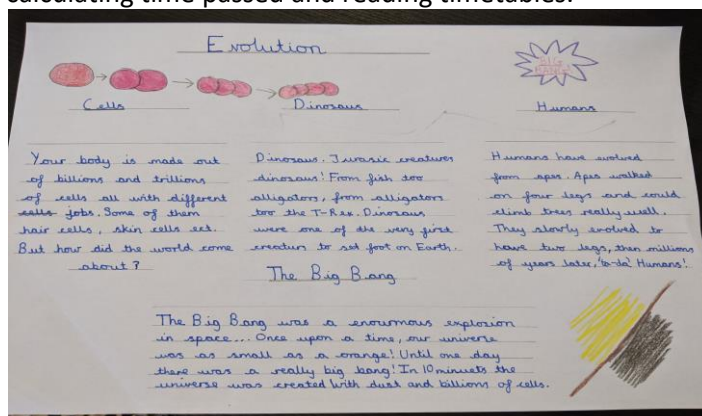 calculating time passed and reading timetables.
Evolution
Cells
Your body is made out
of billions and trillions
of cells all with different
cells jobs. Some of them
hair cells, skin cells ect.
But how did the world come
about?
Dinosaus
Dinosaus. Jurasic creatures
dinosaus! From fish too
alligators, from alligators
too the T-Rex. Dinosaus
were one of the very first
creaturs to set foot on Earth.
Humans
Humans have evolved
from apes. Apes walked
on four legs and could
climb trees really well.
They slowly evolved to
have two legs, then millions
of years later, 'ta-da' Humans!
The Big Bang
The Big Bang was a enourmous explosion
in space... Once upon a time, our universe
was as small as a orange! Until one day
there was a really big bang! In 10 minuets the
universe was created with dust and billions of cells.